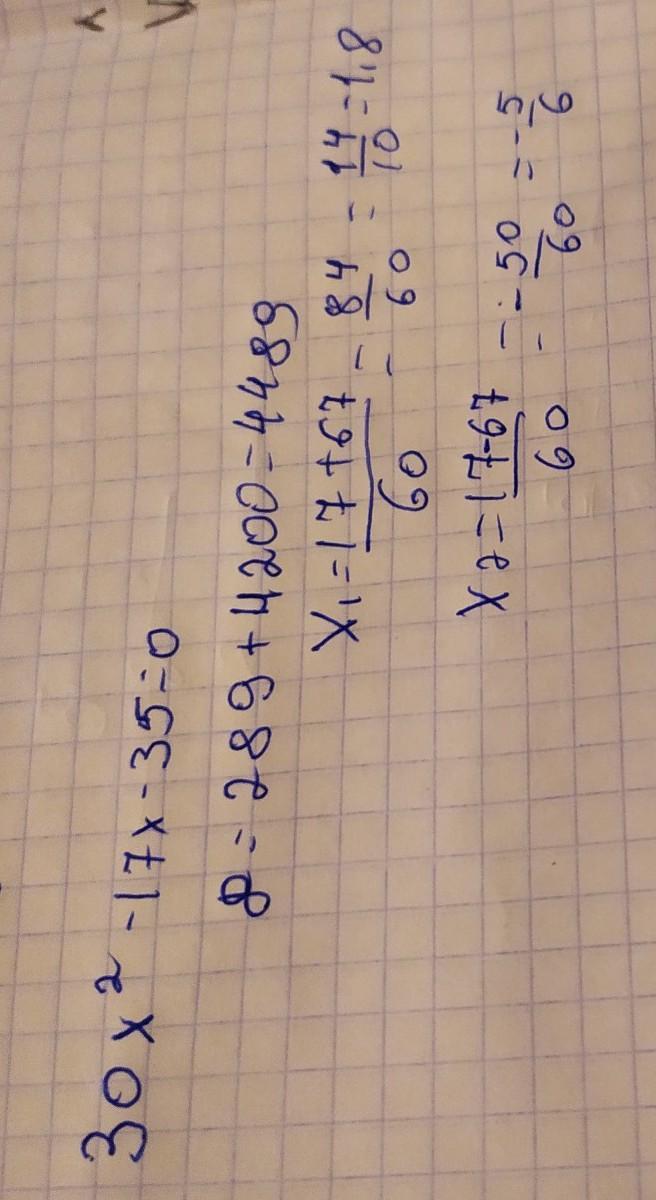 30x² - 17x - 35 = 0
D = 289 + 4200 = 4489
x₁ = (17 + 67)/60 = 84/60 = 14/10 = 1,8
x₂ = (17 - 67)/60 = -50/60 = -5/6